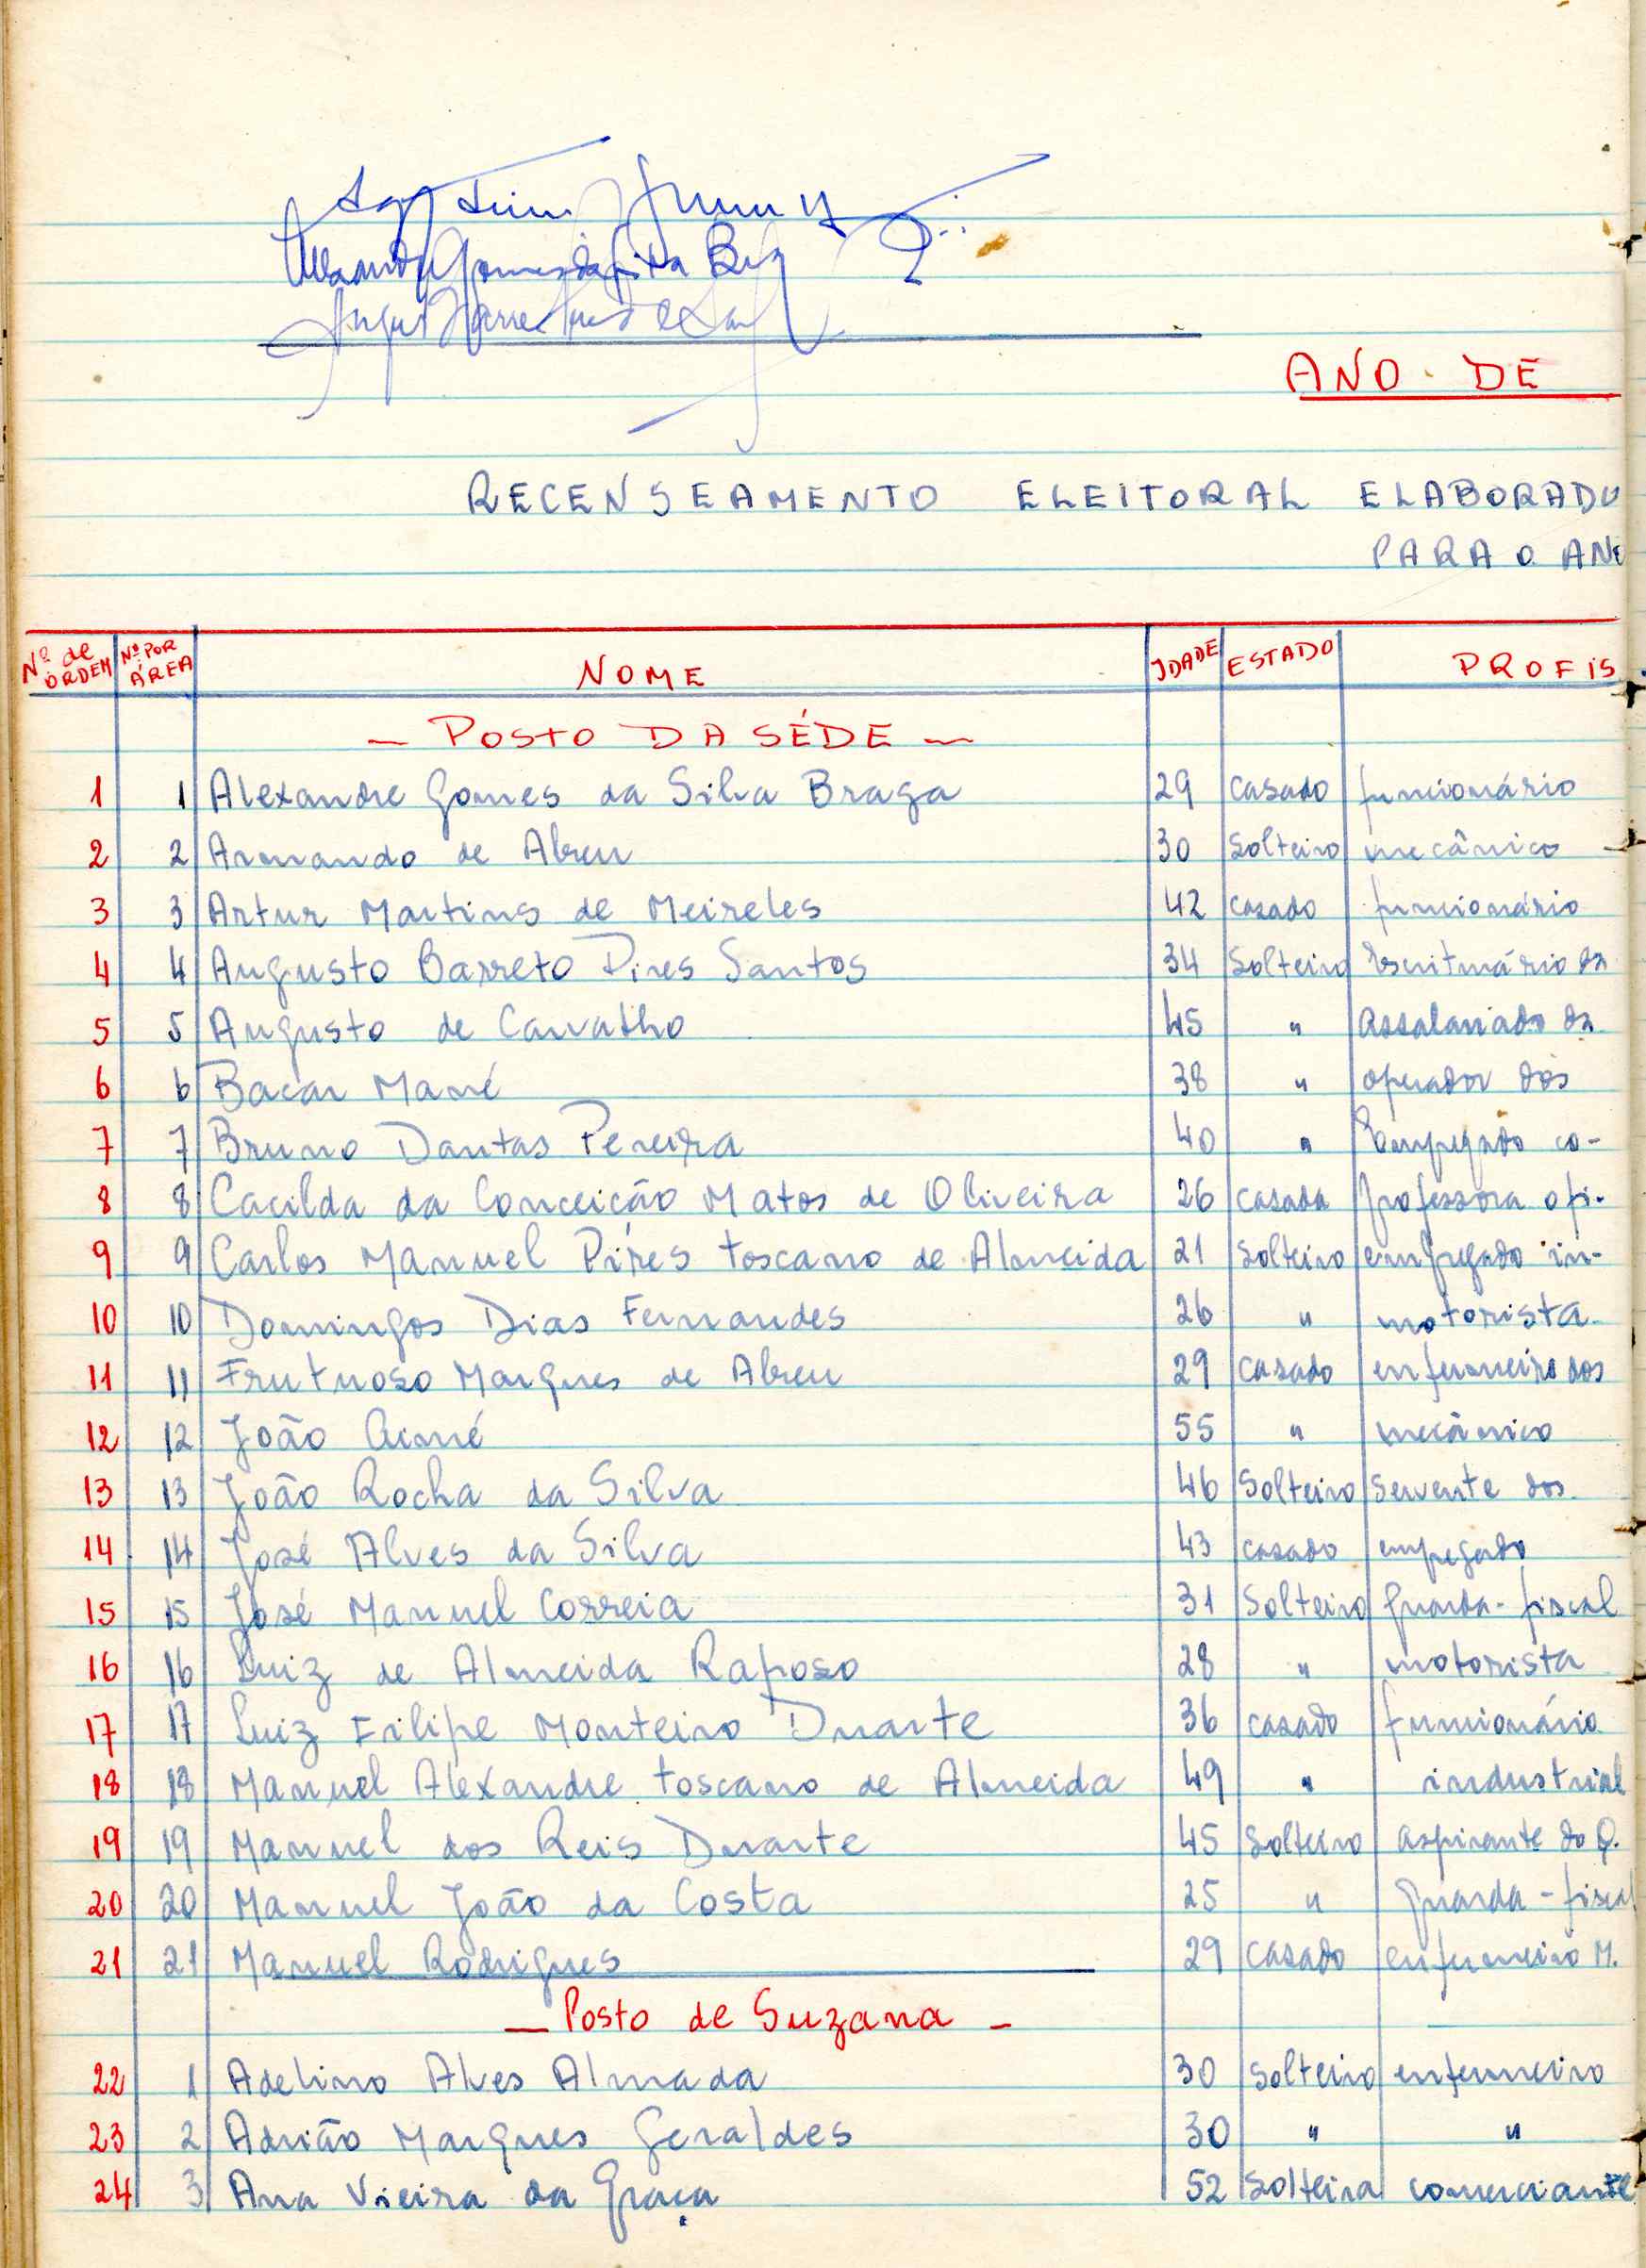 Alexandre Gomes da Silva Braga
ANO DE
RECENSEAMENTO ELEITORAL ELABORADO
PARA O ANO
Nº de ORDEM Nº POR ÁREA NOME IDADE ESTADO PROFIS
— POSTO DA SÉDE —
1 1 Alexandre Gomes da Silva Braga 29 casado funcionário
2 2 Armando de Abreu 30 Solteiro mecânico
3 3 Artur Martins de Meireles 42 casado funcionário
4 4 Augusto Barreto Pires Santos 34 Solteiro Escriturário da
5 5 Augusto de Carvalho 45 " Assalariado da
6 6 Bacar Mané 38 " operador dos
7 7 Bruno Dantas Pereira 40 " Empregado co-
8 8 Cacilda da Conceição Matos de Oliveira 26 casada professora ofi-
9 9 Carlos Manuel Pires Toscano de Almeida 21 Solteiro empregado in-
10 10 Domingos Dias Fernandes 26 " motorista
11 11 Frutuoso Marques de Abreu 29 casado enfermeiro dos
12 12 João 55 " mecânico
13 13 João Rocha da Silva 46 Solteiro Servente dos
14 14 José Alves da Silva 43 casado empregado
15 15 José Manuel Correia 31 Solteiro guarda-fiscal
16 16 Luiz de Almeida Raposo 28 " motorista
17 17 Luiz Filipe Monteiro Duarte 36 casado funcionário
18 18 Manuel Alexandre Toscano de Almeida 49 " industrial
19 19 Manuel dos Reis Duarte 45 Solteiro aspirante do Q.
20 20 Manuel João da Costa 25 " guarda-fiscal
21 21 Manuel Rodrigues 29 casado enfermeiro M.
— Posto de Suzana —
22 1 Adelino Alves Almada 30 Solteiro enfermeiro
23 2 Adrião Marques Geraldes 30 " "
24 3 Ana Vieira da Graça 52 Solteira comerciante